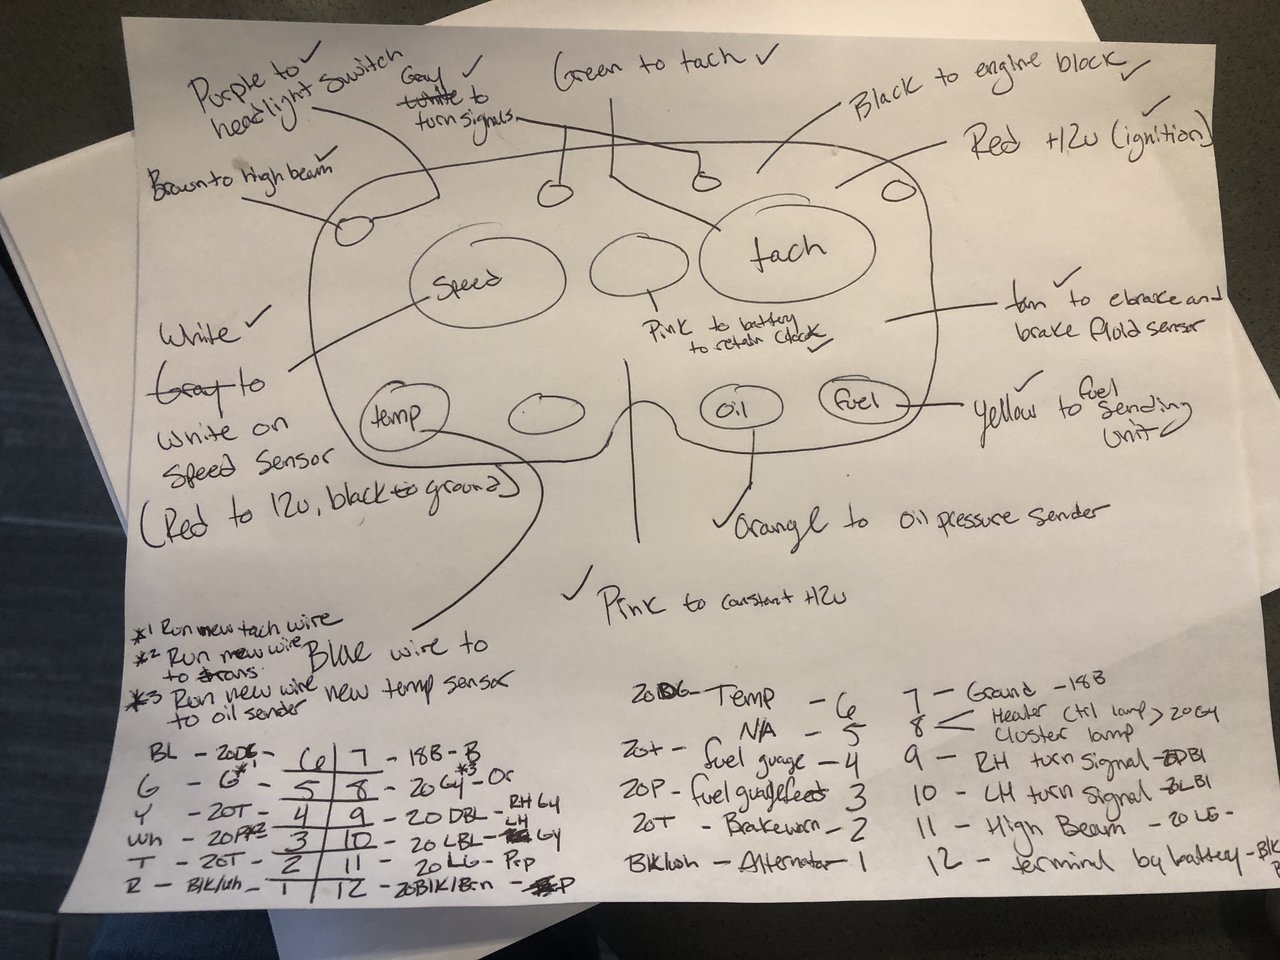 Purple to
headlight switch
Gray
White to
turn signals
Green to tach
Black to engine block
Red +12v (ignition)
Brown to High beam
Speed
tach
Pink to battery
to retain clock
tan to ebrake and
brake fluid sensor
White
Gray to
white on
speed sensor
(Red to 12v, black to ground)
temp
oil
fuel
Yellow to fuel
sending
unit
Orange to oil pressure sender
Pink to constant +12v
*1 Run new tach wire
*2 Run new wire
to trans.
*3 Run new wire
to oil sender
Blue wire to
new temp sensor
BL - 20DG - 6 7 - 18B - B
G - G*1 - 5 8 - 20Gy*3 - Or
Y - 20T - 4 9 - 20 DBL - RH Gy
Wh - 20P*2 - 3 10 - 20 LBL - LH Gy
T - 20T - 2 11 - 20 LG - Prp
R - Blk/wh - 1 12 - 20Blk/Brn - P
20DG - Temp - 6
N/A - 5
20T - fuel guage - 4
20P - fuel guage feed 3
20T - Brakewarn - 2
Blk/wh - Alternator - 1
7 - Ground - 18B
8 Heater Ctrl lamp > 20Gy
Cluster lamp
9 - RH turn signal - 20DBl
10 - LH turn signal - 20LBl
11 - High Beam - 20 LG -
12 - terminal by battery - Blk